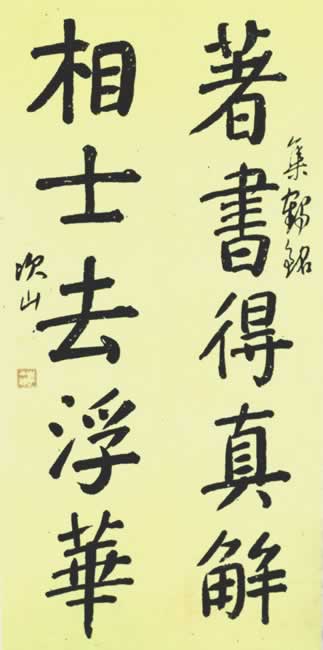 著書得真解
集鶴銘
相士去浮華
次山